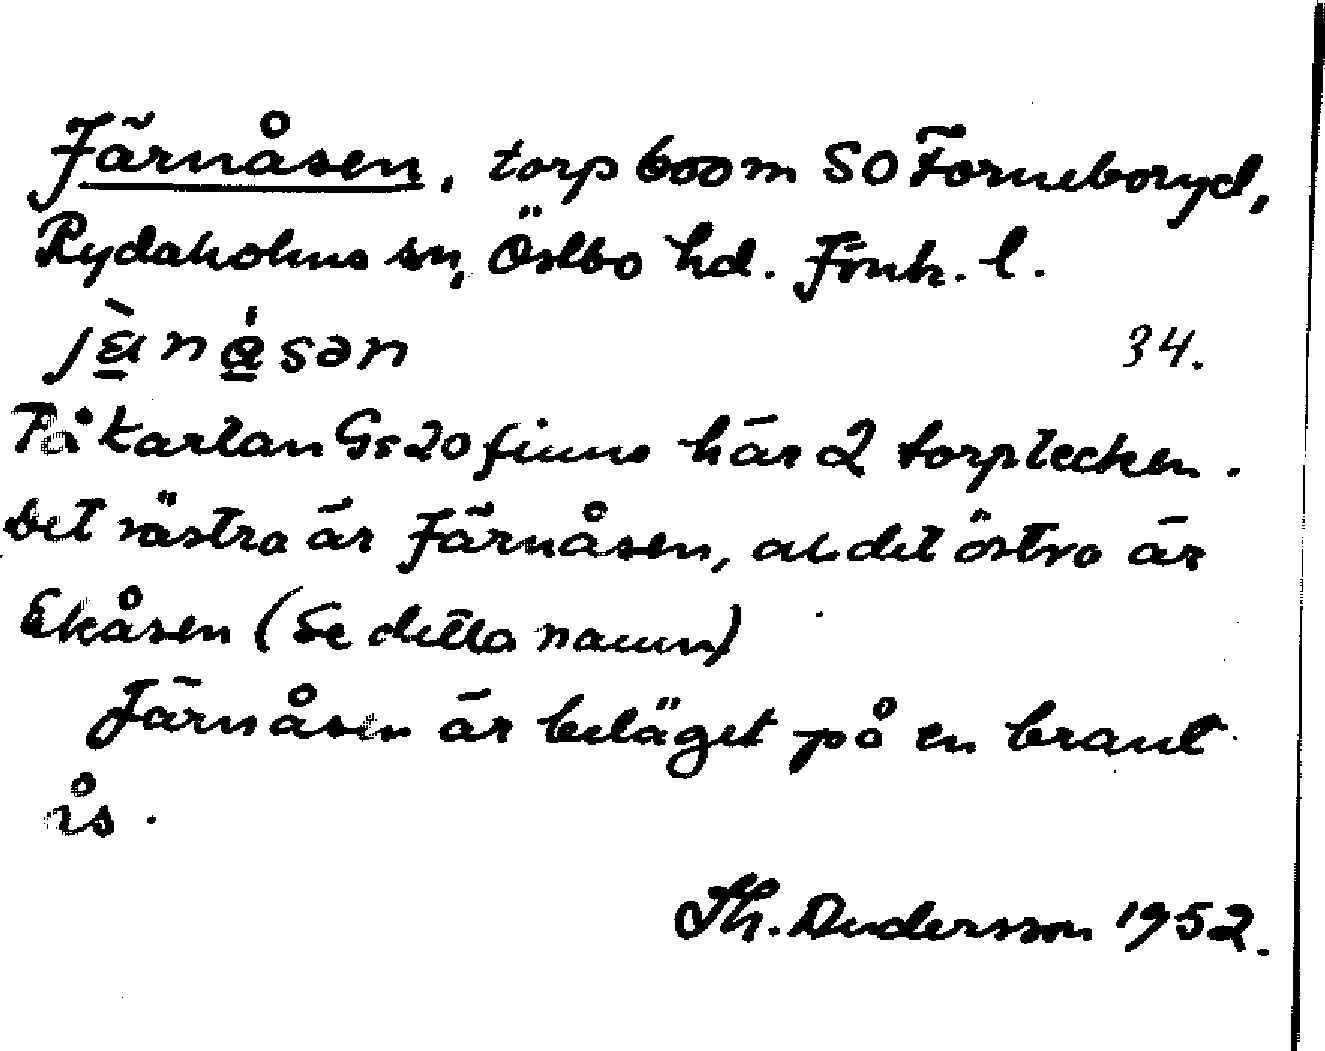 Järnåsen, torp 600 m SO Forneboryd,
Rydaholms sn, Östbo hd. Jönk. l.
34.
På kartan Gs 20 finns här 2 torptecken.
Det västra är Järnåsen, ab det östra är
Ekåsen (Se detta namn)
Järnåsen är beläget på en brant
ås.
Th. Andersson 1952.